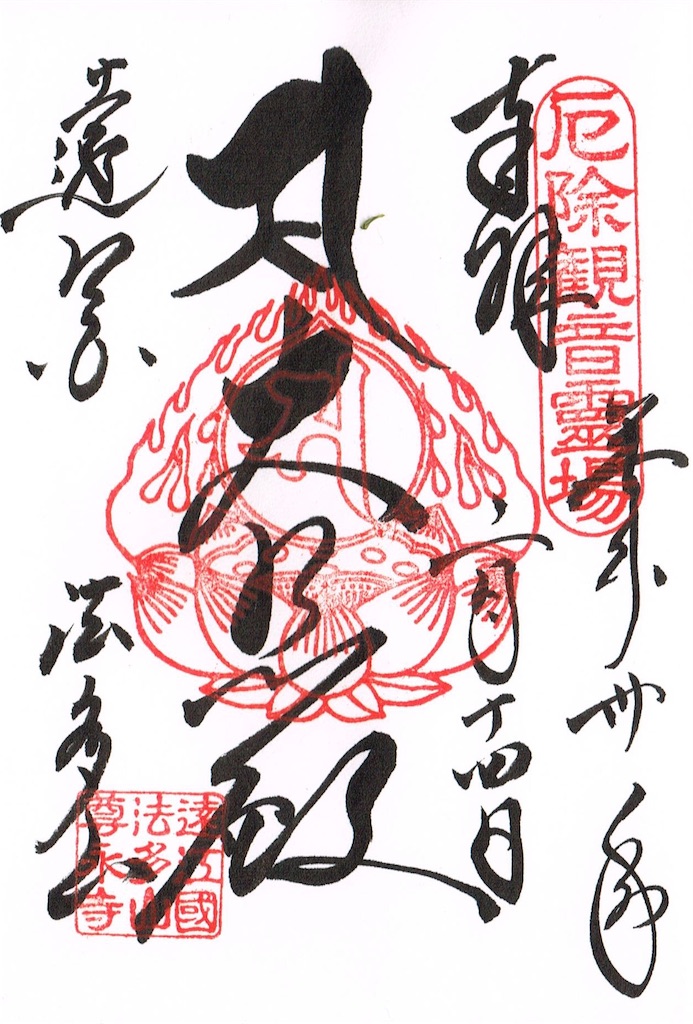 厄除観音靈場
奉拝
平成卅年
二月十四日
大悲殿
法多山
遠江國
法多山
尊永寺